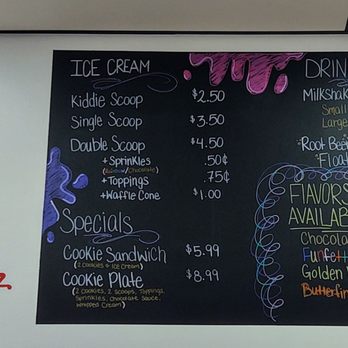 ICE CREAM
Kiddie Scoop $2.50
Single Scoop $3.50
Double Scoop $4.50
+Sprinkles .50¢
(Rainbow/Chocolate)
+Toppings .75¢
+Waffle Cone $1.00
Specials
Cookie Sandwich $5.99
(2 Cookies + Ice Cream)
Cookie Plate $8.99
(2 Cookies, 2 Scoops, Toppings,
Sprinkles, Chocolate Sauce,
Whipped Cream)
DRIN
Milkshak
Small
Large
Root Bee
Float
FLAVORS
AVAILAB
Chocola
Funfett
Golden
Butterfin